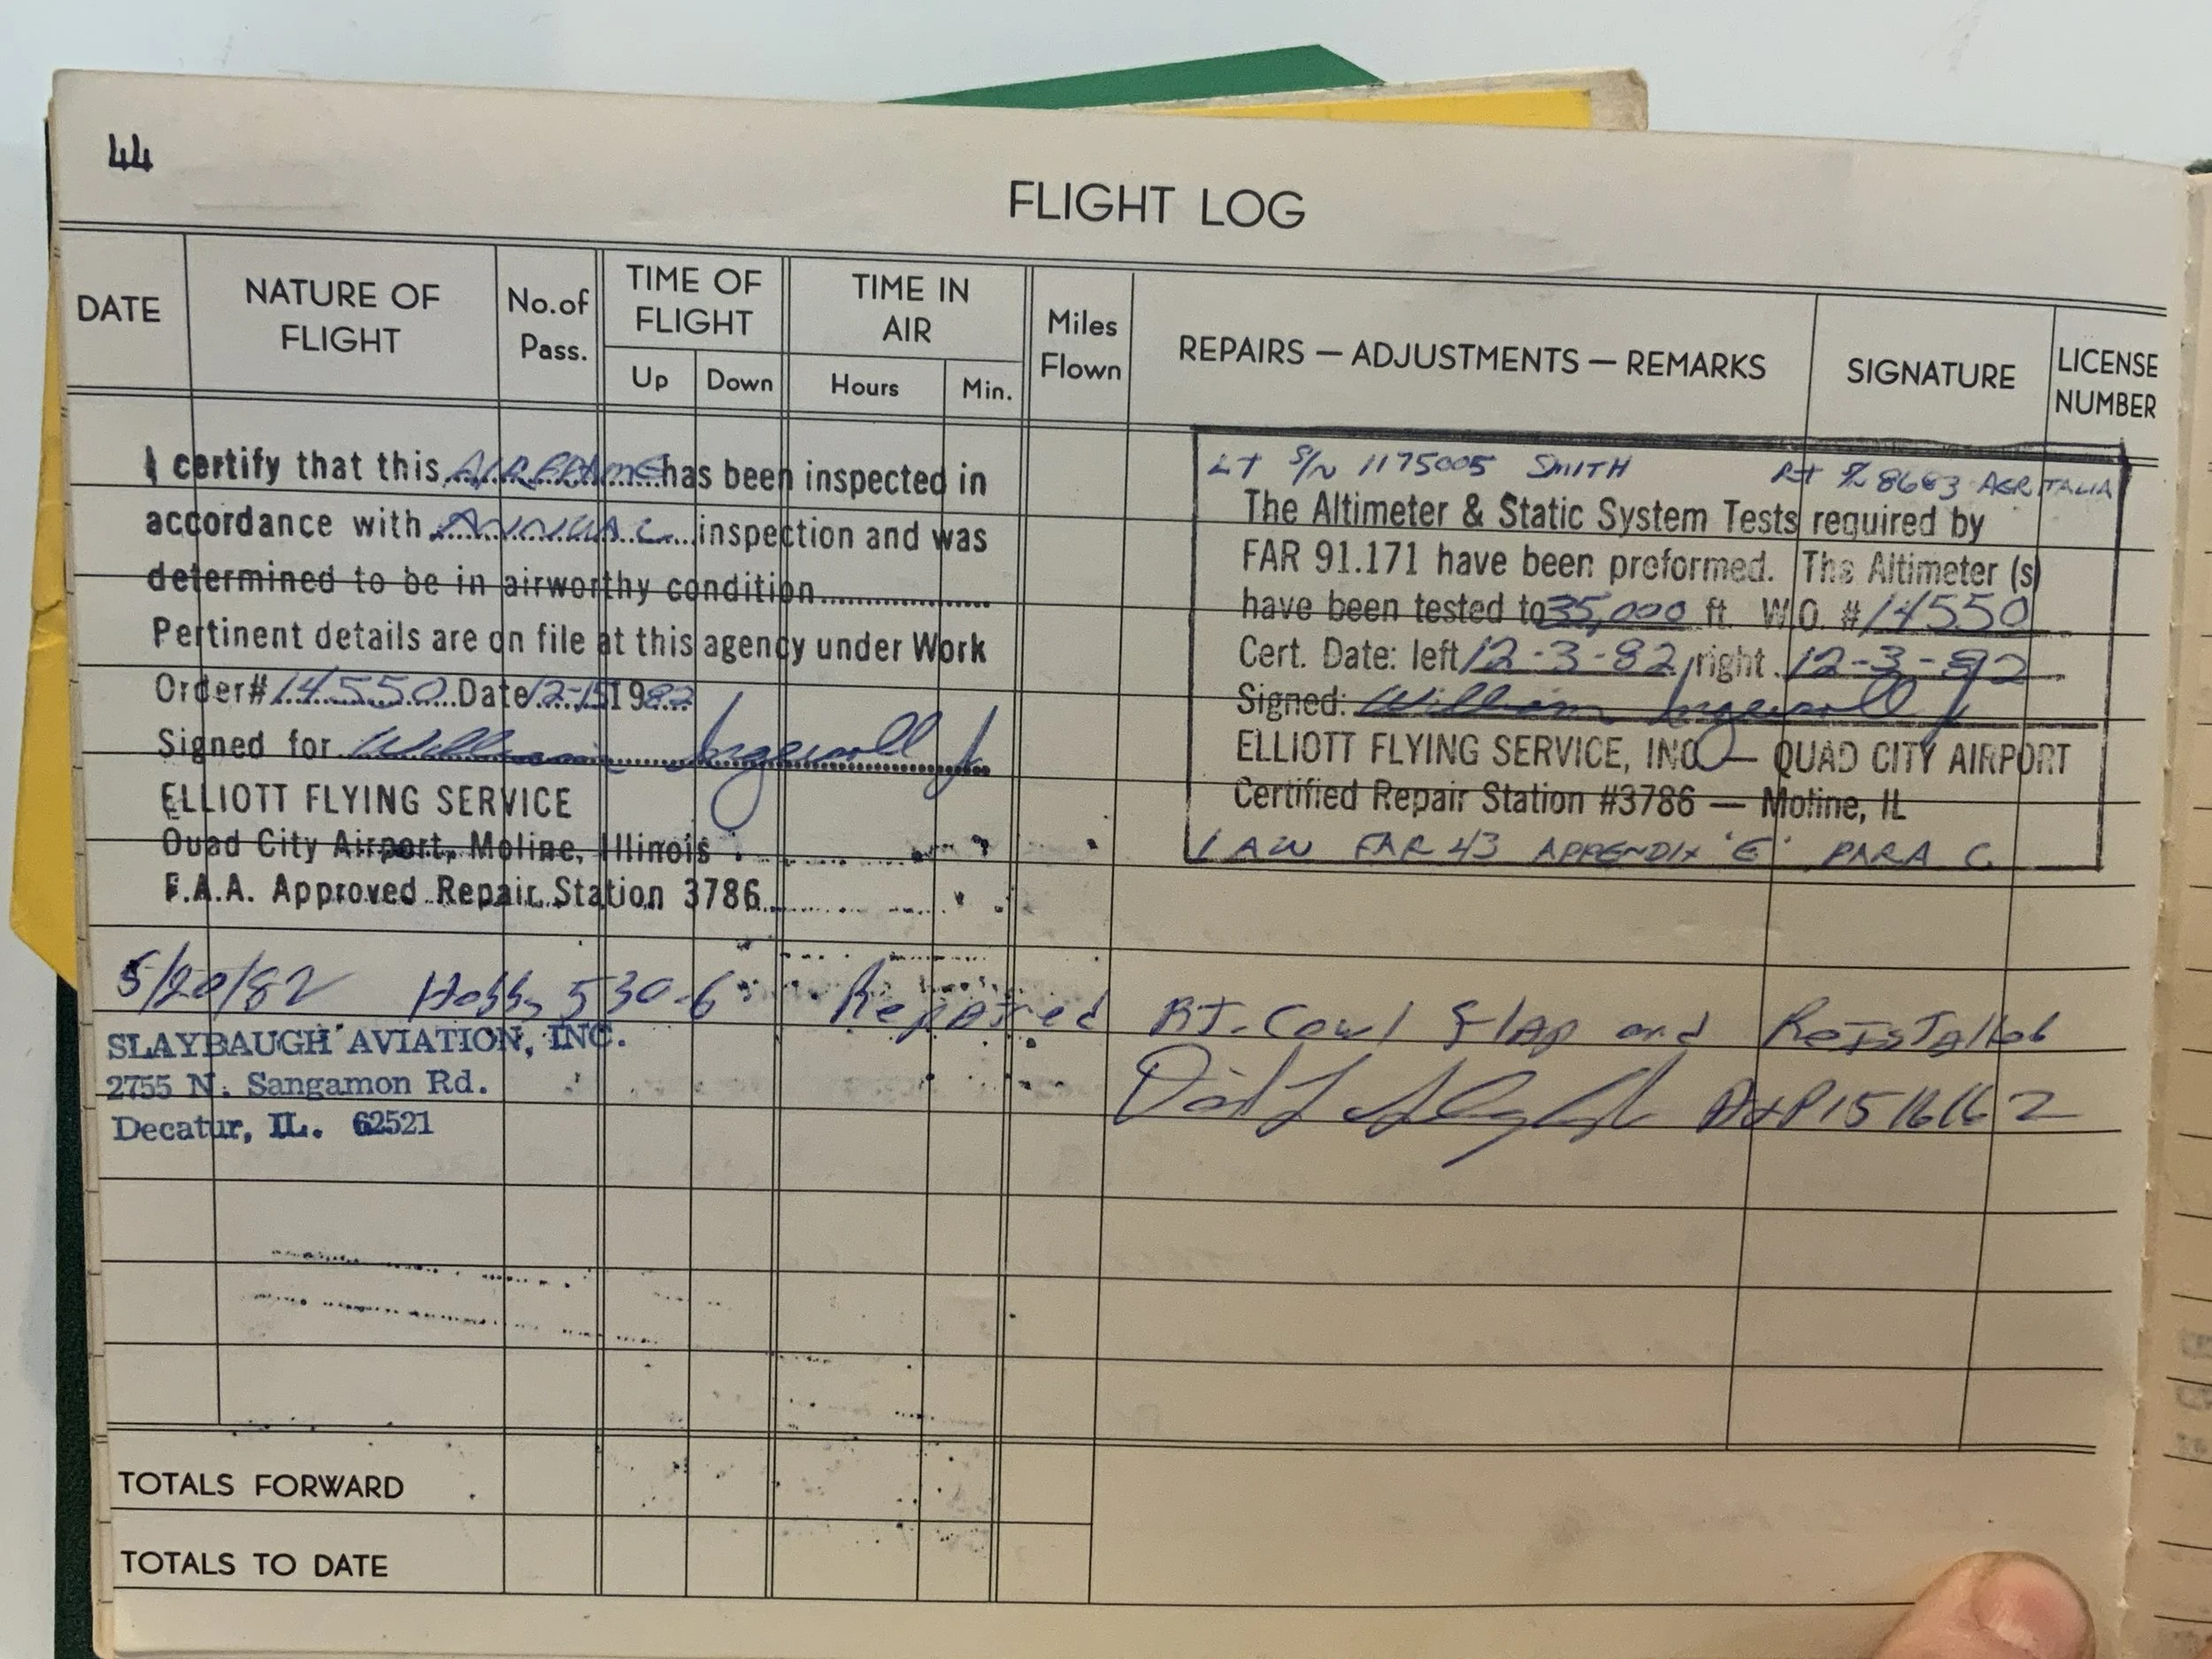 44
FLIGHT LOG
DATE
NATURE OF FLIGHT
No. of Pass.
TIME OF FLIGHT
Up Down
TIME IN AIR
Hours Min.
Miles Flown
REPAIRS — ADJUSTMENTS — REMARKS
SIGNATURE
LICENSE NUMBER
I certify that this AIRFRAME has been inspected in
accordance with ANNUAL inspection and was
determined to be in airworthy condition
Pertinent details are on file at this agency under Work
Order# 14550 Date 12-15 1982
Signed for William Ingersoll Jr
ELLIOTT FLYING SERVICE
Quad City Airport, Moline, Illinois
F.A.A. Approved Repair Station 3786
LT S/N 1175005 SMITH RT S/N 8683 AERITALIA
The Altimeter & Static System Tests required by
FAR 91.171 have been preformed. The Altimeter (s)
have been tested to 35,000 ft. W.O. # 14550
Cert. Date: left 12-3-82 right 12-3-82
Signed: William Ingersoll Jr
ELLIOTT FLYING SERVICE, INC — QUAD CITY AIRPORT
Certified Repair Station #3786 — Moline, IL
IAW FAR 43 APPENDIX 'E' PARA C
5/20/82 Hobbs 530.6 Repaired RT. Cowl Flap and
SLAYBAUGH AVIATION, INC.
2755 N. Sangamon Rd.
Decatur, IL. 62521
A&P 1516162
TOTALS FORWARD
TOTALS TO DATE